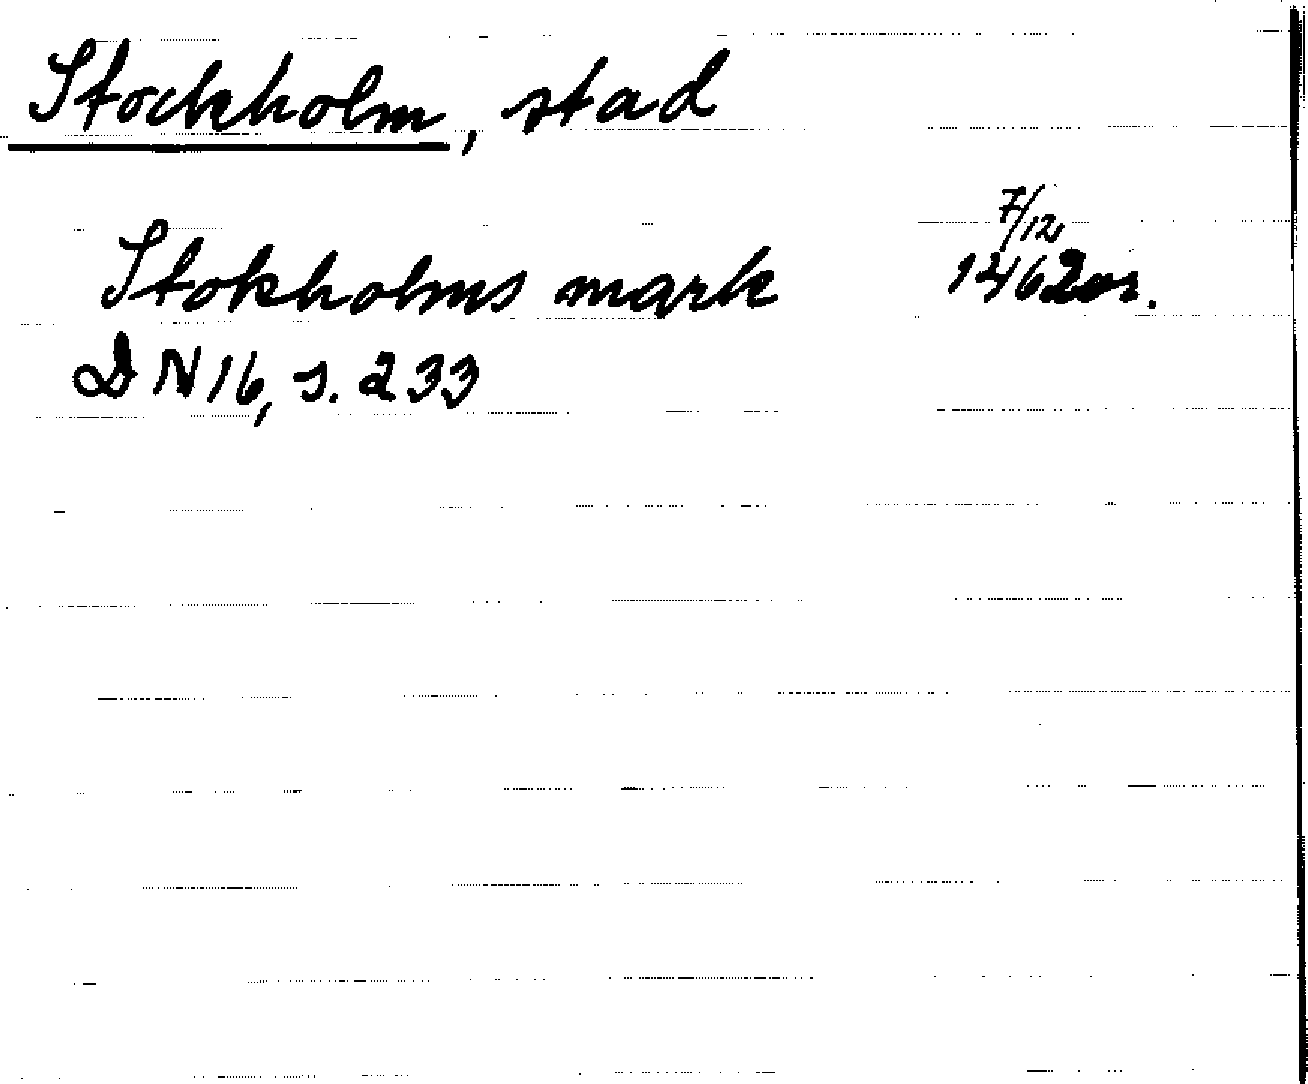 Stockholm, stad
7/12
Stokholms mark 1462 or.
DN 16, s. 233